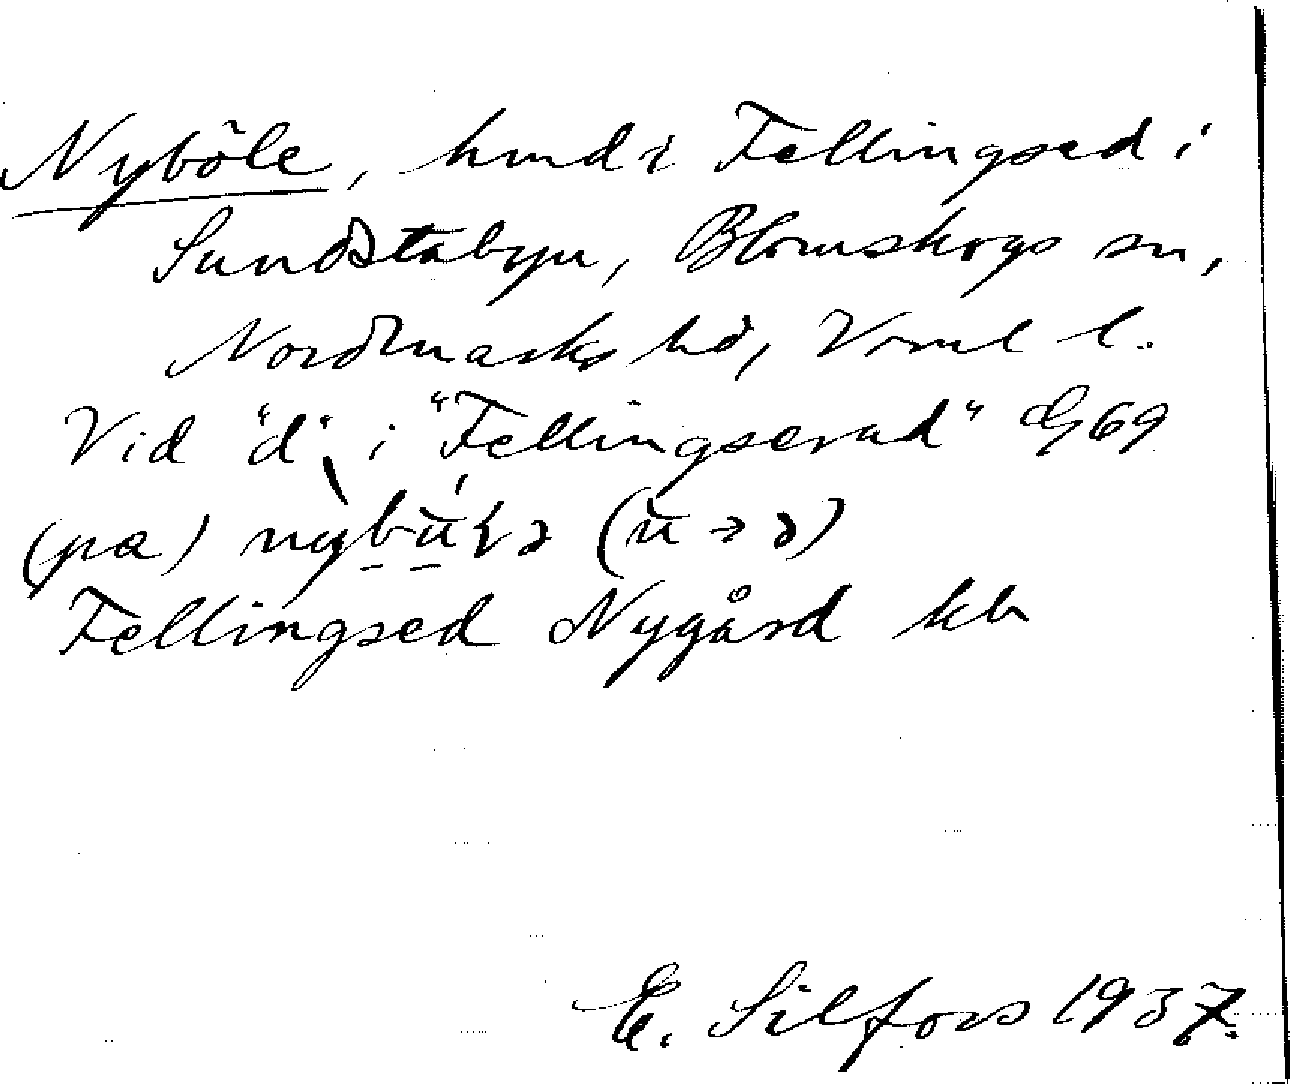 Nyböle, hmd i Fellingsed i
Sundstabyn, Blomskogs sn,
Nordmarks hd, Vrml l.
Vid "d" i "Fellingserud" G 69
(pa)
Fellingsed Nygård kb
E. Silfors 1937.